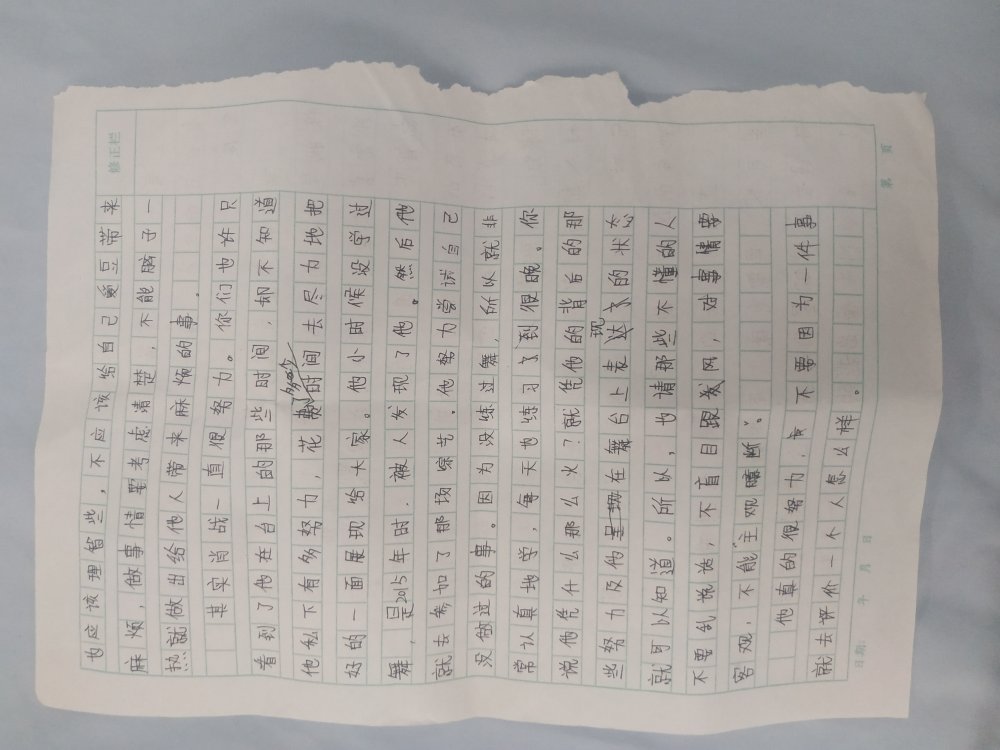 修正栏
也应该理智些，不应该给自己爱豆带来
麻烦，做事情要考虑清楚，不能脑子一
热就做出给他人带来麻烦的事。
其实肖战一直很努力。你们也许只
看到了他在台上的那些时间，却不知道
他私下有多努力，花多少时间去尽力地把
好的一面展现给大家。他小时候没学过
舞，是2015年时．被人发现了他。然后他
就去参加了那场综艺．他努力尝试自己
没做过的事。因为没练过舞，所以就非
常认真地学，每天也练习了到很晚。你
说他凭什么那么火？就凭他的背后的那
些努力及他呈现在舞台上表现的状态
就可以知道。所以，也请那些不懂的人
不要乱说话，不盲目跟风，对事情要
客观，不能"主观臆断"。
他真的很努力，不要因为一件事
就去评价一个人怎么样。
日期： 年 月 日
第 页